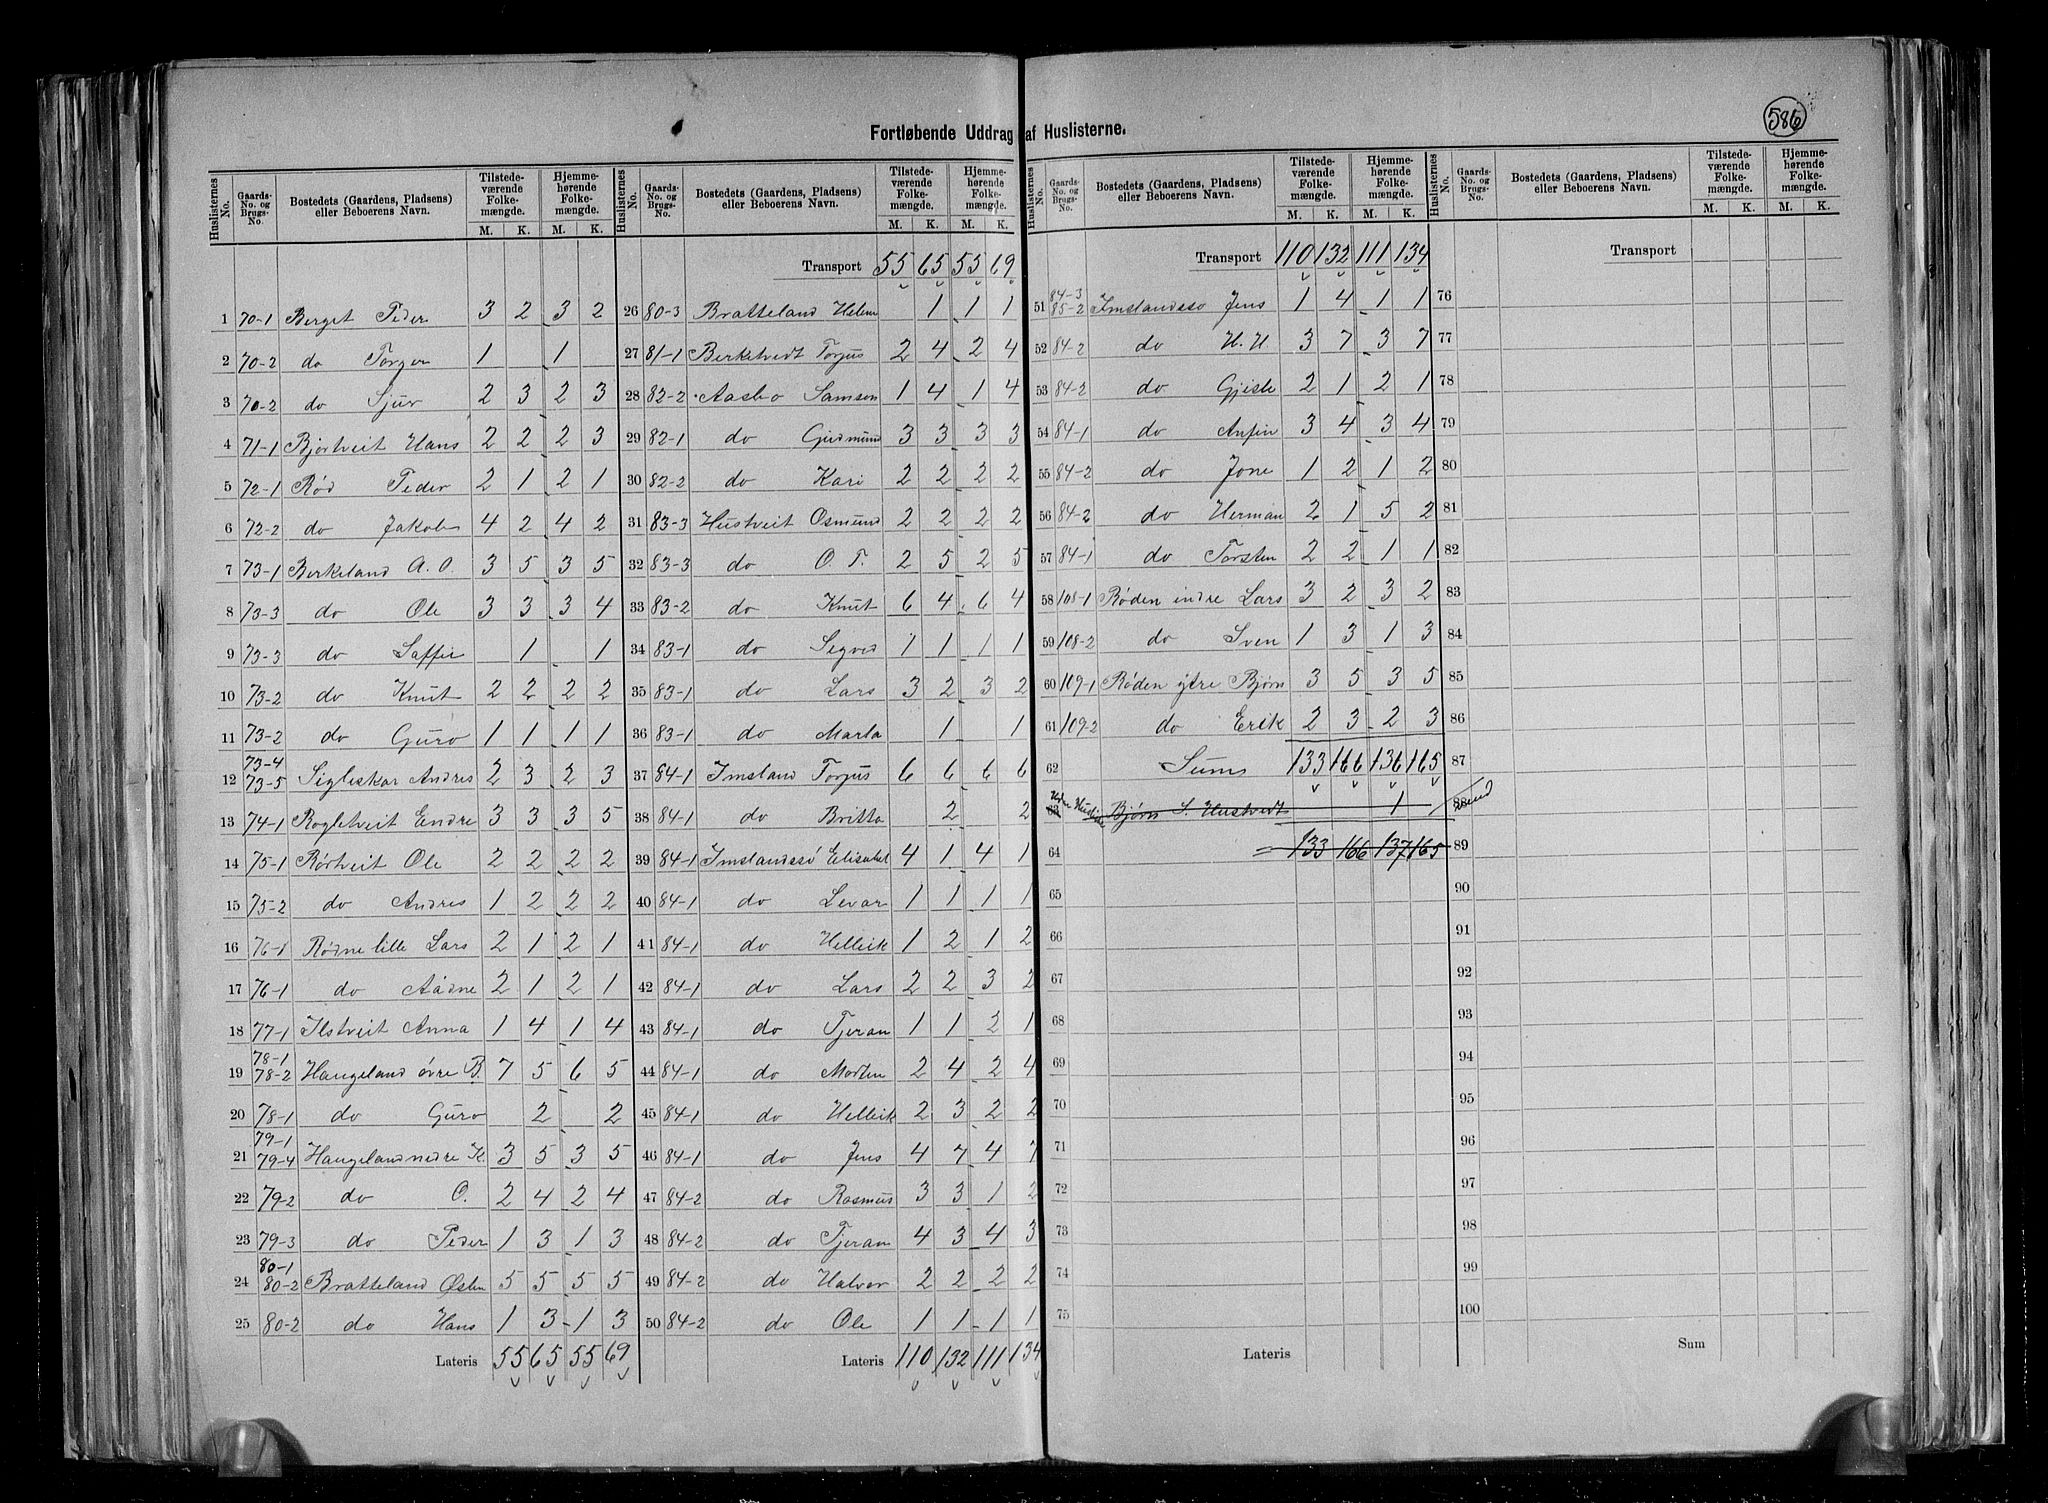 586
Fortløbende Uddrag af Huslisterne.
Huslisternes No. Gaards-No. og Brugs-No. Bostedets (Gaardens, Pladsens) eller Beboerens Navn. Tilstedeværende Folkemængde. M. K. Hjemmehørende Folkemængde. M. K.
1 70-1 Berget Peder 3 2 3 2
2 70-2 do Torger 1 1
3 70-2 do Sjur 2 3 2 3
4 71-1 Bjørtveit Hans 2 2 2 3
5 72-1 Rød Peder 2 1 2 1
6 72-2 do Jakob 4 2 4 2
7 73-1 Berkeland A. O. 3 5 3 5
8 73-3 do Ole 3 3 3 4
9 73-3 do Saffir 1 1
10 73-2 do Knut 2 2 2 2
11 73-2 do Guro 1 1 1 1
12 73-4 73-5 Sigleskar Andres 2 3 2 3
13 74-1 Rogletveit Endre 3 3 3 5
14 75-1 Rørtveit Ole 2 2 2 2
15 75-2 do Andres 1 2 2 2
16 76-1 Rødne lille Lars 2 1 2 1
17 76-1 do Aadne 2 1 2 1
18 77-1 Ilstveit Anna 1 4 1 4
19 78-1 78-2 Haugeland øvre B. 7 5 6 5
20 78-1 do Guro 2 2
21 79-1 79-4 Haugeland nedre K. 3 5 3 5
22 79-2 do O. 2 4 2 4
23 79-3 do Peder 1 3 1 3
24 80-1 80-2 Bratteland Østen 5 5 5 5
25 80-2 do Hans 1 3 1 3
Lateris 55 65 55 69
Huslisternes No. Gaards-No. og Brugs-No. Bostedets (Gaardens, Pladsens) eller Beboerens Navn. Tilstedeværende Folkemængde. M. K. Hjemmehørende Folkemængde. M. K.
Transport 55 65 55 69
26 80-3 Bratteland Helene 1 1 1
27 81-1 Berketvedt Torjus 2 4 2 4
28 82-2 Aasbo Samson 1 4 1 4
29 82-1 do Gudmund 3 3 3 3
30 82-2 do Kari 2 2 2 2
31 83-3 Hustveit Osmund 2 2 2 2
32 83-3 do O. T. 2 5 2 5
33 83-2 do Knut 6 4 6 4
34 83-1 do Segved 1 1 1 1
35 83-1 do Lars 3 2 3 2
36 83-1 do Marta 1 1
37 84-1 Imsland Torjus 6 6 6 6
38 84-1 do Britta 2 2
39 84-1 Imslandssø Elisabet 4 1 4 1
40 84-1 do Levar 1 1 1 1
41 84-1 do Hellek 1 2 1 2
42 84-1 do Lars 2 2 3 2
43 84-1 do Tjeran 1 1 2 1
44 84-1 do Morten 2 4 2 4
45 84-1 do Helleik 2 3 2 2
46 84-1 do Jens 4 7 4 7
47 84-2 do Rasmus 3 3 1 2
48 84-2 do Tjeran 4 3 4 3
49 84-2 do Halvor 2 2 2 2
50 84-2 do Ole 1 1 1 1
Lateris 110 132 111 134
Huslisternes No. Gaards-No. og Brugs-No. Bostedets (Gaardens, Pladsens) eller Beboerens Navn. Tilstedeværende Folkemængde. M. K. Hjemmehørende Folkemængde. M. K.
Transport 110 132 111 134
51 84-3 85-2 Imslandssø Jens 1 4 1 1
52 84-2 do H. H 3 7 3 7
53 84-2 do Gjesle 2 1 2 1
54 84-1 do Anfin 3 4 3 4
55 84-2 do Jone 1 2 1 2
56 84-2 do Herman 2 1 5 2
57 84-1 do Torsten 2 2 1 1
58 108-1 Røden indre Lars 3 2 3 2
59 108-2 do Sven 1 3 1 3
60 109-1 Røden ytre Bjørn 3 5 3 5
61 109-2 do Erik 2 3 2 3
62 Sum 133 166 136 165
63 Bjørn S. Hustvedt 1
64 = 133 166 137 165
65
66
67
68
69
70
71
72
73
74
75
Lateris
Huslisternes No. Gaards-No. og Brugs-No. Bostedets (Gaardens, Pladsens) eller Beboerens Navn. Tilstedeværende Folkemængde. M. K. Hjemmehørende Folkemængde. M. K.
Transport
76
77
78
79
80
81
82
83
84
85
86
87
88
89
90
91
92
93
94
95
96
97
98
99
100
Sum